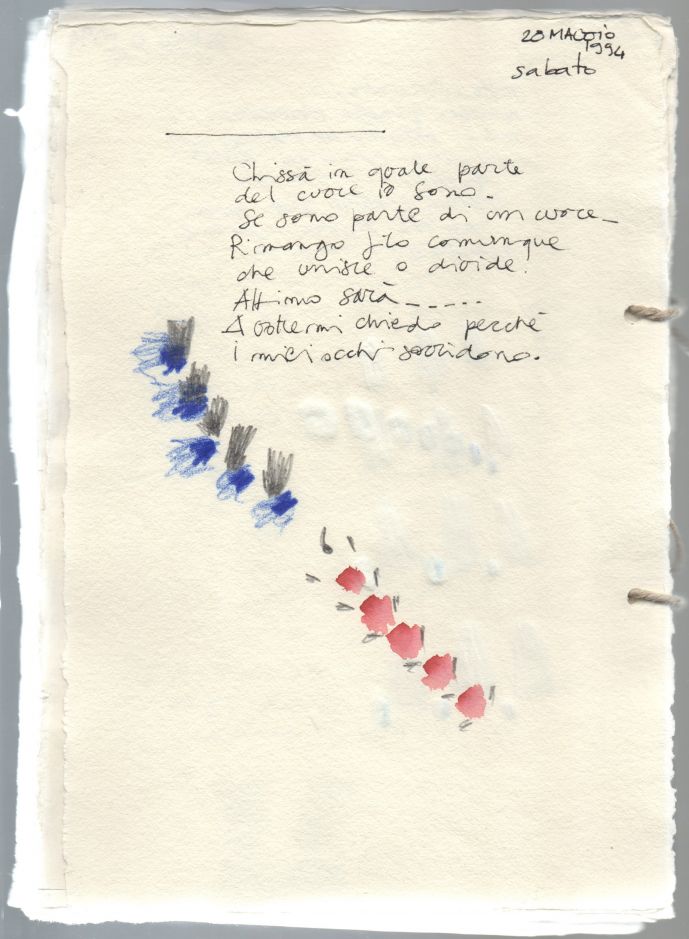 28 MAGGIO
1994
sabato
Chissà in quale parte
del cuore io sono.
Se sono parte di un cuore_
Rimango filo comunque
che unisce o divide.
Attimo sarà_ _ _ _ _
A voltermi chiedo perché
i miei occhi sorridono.